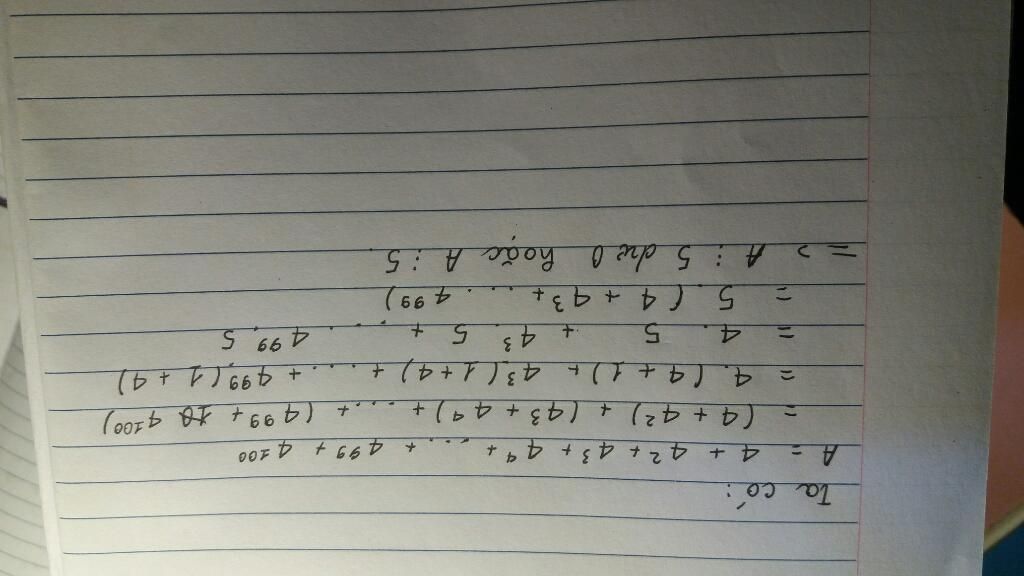 Ta có:
A = 4 + 4² + 4³ + 4⁴ + ... + 4⁹⁹ + 4¹⁰⁰
= (4 + 4²) + (4³ + 4⁴) + ... + (4⁹⁹ + 4¹⁰⁰)
= 4. (4 + 1) + 4³ (1 + 4) + ... + 4⁹⁹. (1 + 4)
= 4. 5 + 4³. 5 + ... 4⁹⁹. 5
= 5. (4 + 4³ + ... 4⁹⁹)
=> A : 5 dư 0 hoặc A ⋮ 5.